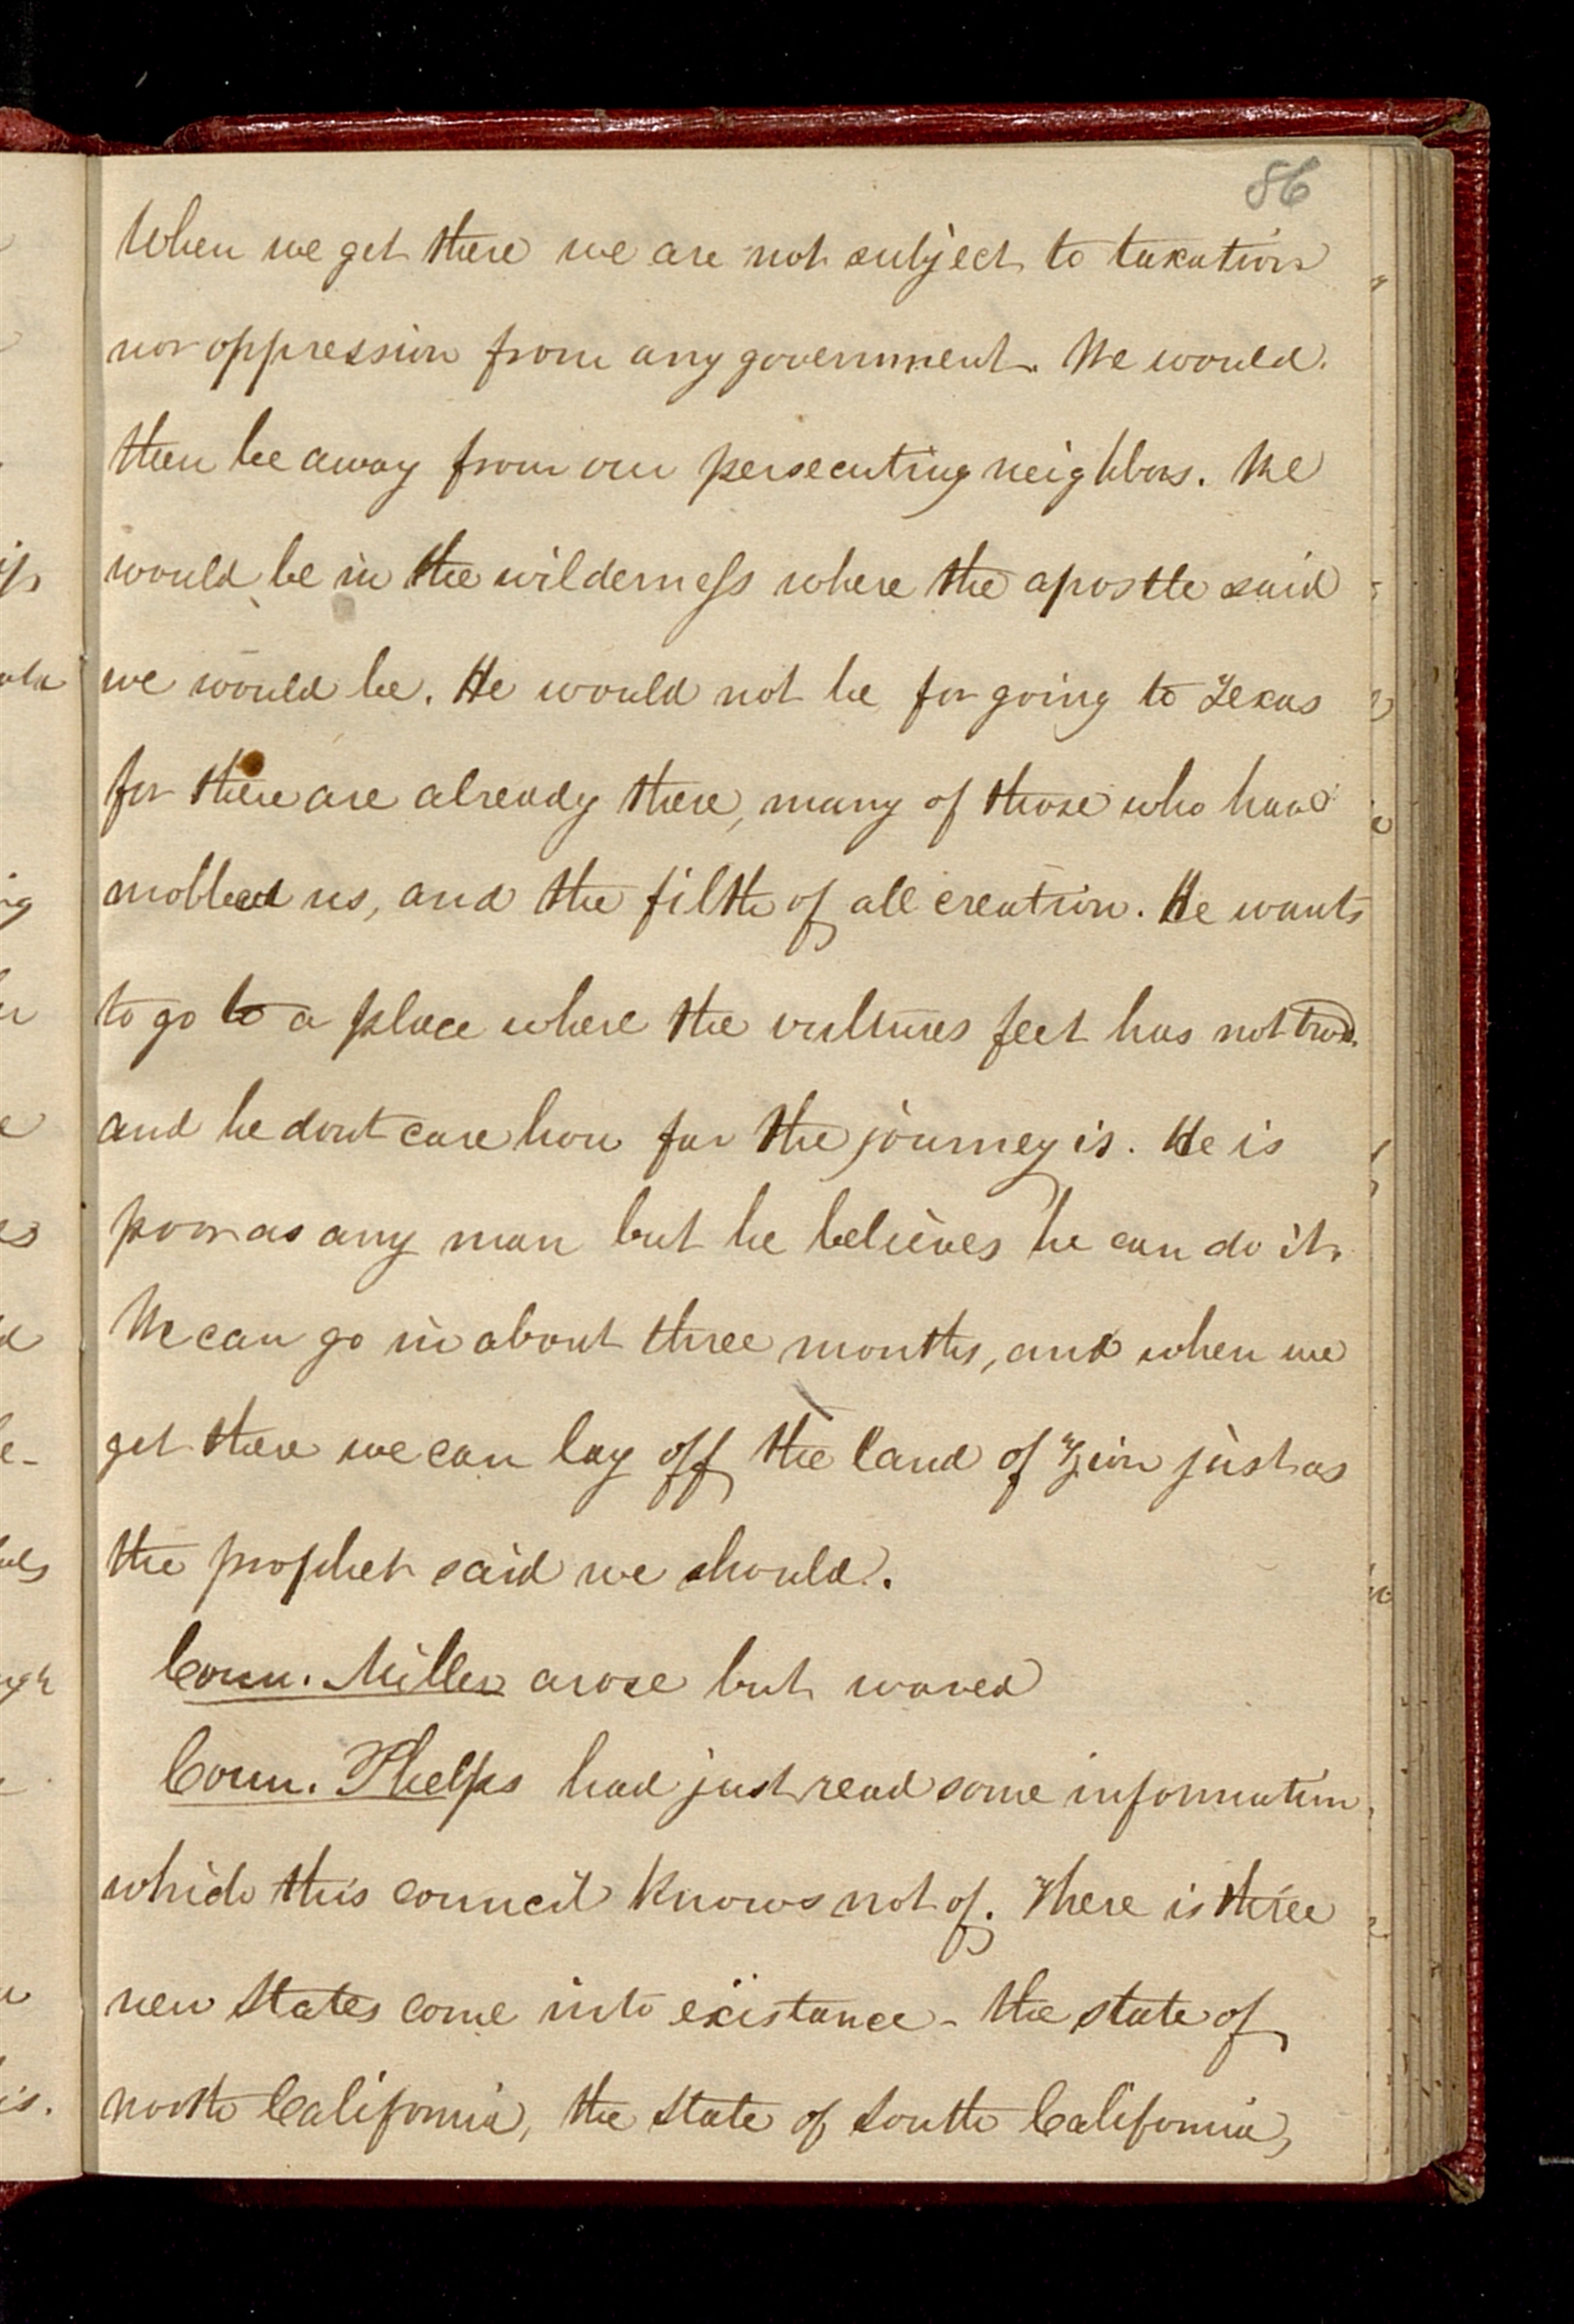 86
When we get there we are not subject to taxation
nor oppression from any government. We would
then be away from our persecuting neighbors. We
would be in the wilderness where the apostle said
we would be. He would not be for going to Texas
for there are already there, many of those who have
mobbed us, and the filth of all creation. He wants
to go to a place where the vultures feet has not trod.
and he dont care how far the journey is. He is
poor as any man but he believes he can do it.
We can go in about three months, and when we
get there we can lay off the land of Zion just as
the prophet said we should.
Coun. Miller arose but waved
Coun. Phelps had just read some information
which this council knows not of. There is three
new States come into existance - the state of
north California, the state of South California,